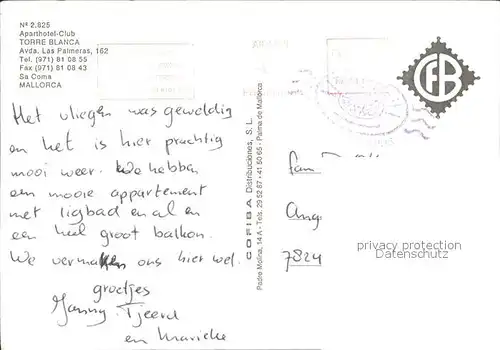 Nº 2.825
Aparthotel-Club
TORRE BLANCA
Avda. Las Palmeras, 162
Tel. (971) 81 08 55
Fax (971) 81 08 43
Sa Coma
MALLORCA
Het vliegen was geweldig
en het is hier prachtig
mooi weer. We hebben
een mooie appartement
met ligbad en al en
een heel groot balkon.
We vermaken ons hier wel.
groetjes
Janny. Tjeerd
en Marieke
COFIBA Distribuciones, S. L.
Padre Molina, 14 A - Tels. 29 52 67 - 41 50 65 - Palma de Mallorca
CFB
fam
Ang
7824
privacy protection
Datenschutz